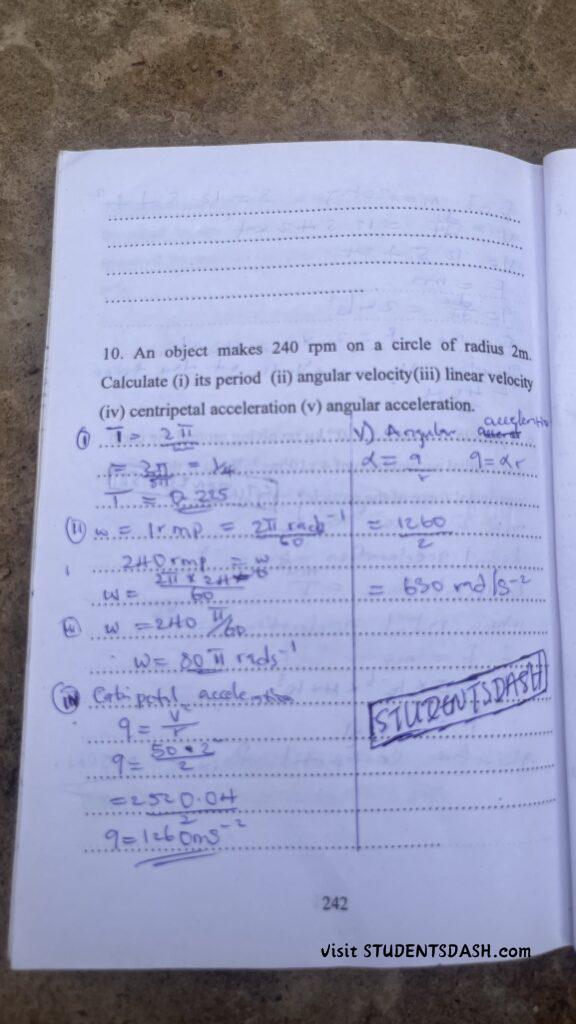 10. An object makes 240 rpm on a circle of radius 2m.
Calculate (i) its period (ii) angular velocity(iii) linear velocity
(iv) centripetal acceleration (v) angular acceleration.
(i) T = 2π
= 2π = 1/4
T = 0.225
(ii) w = 1rmp = 2π rads⁻¹
60
240 rmp = w
w = 2π × 24
60
w = 240 π/60
w = 80 π rads⁻¹
(iv) acceleration
q = v
r
q = 50.2²
2
= 2520.04
2
q = 1260ms⁻²
v) Angular acceleration
α = q
r
q = αr
= 1260
2
= 630 rad/s⁻²
STUDENTSDASH
242
visit STUDENTSDASH.com